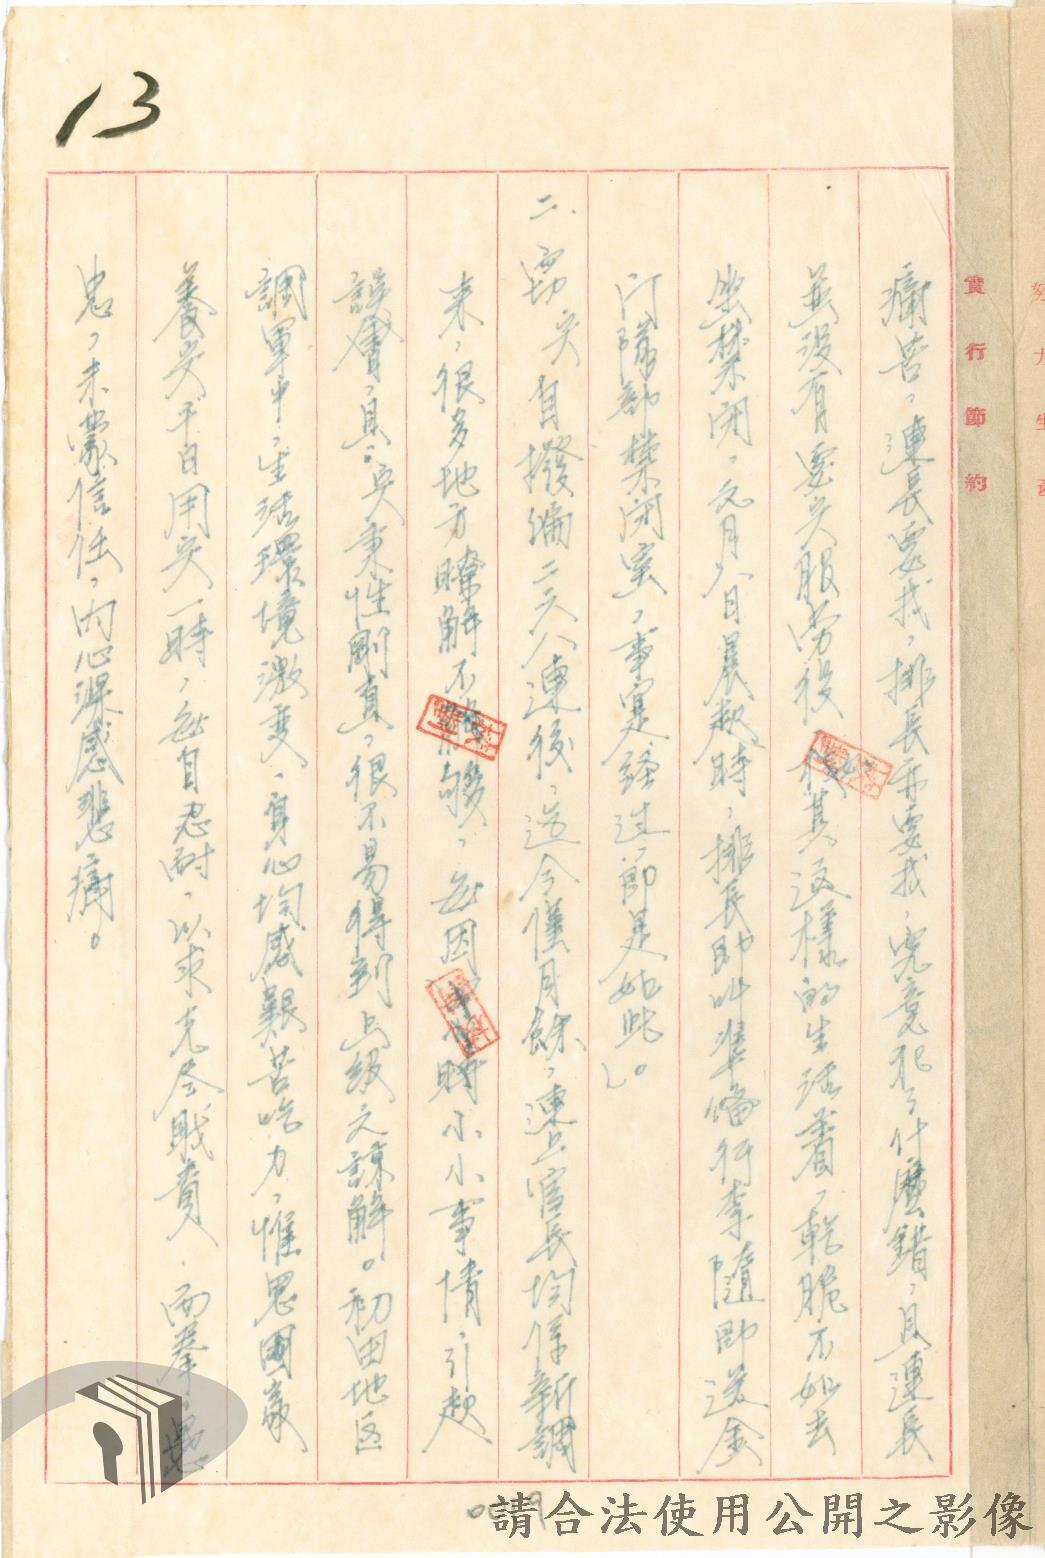 13
痛苦，連長要找，排長亦要找，究竟犯了什麼錯，且連長
並沒有要吳服勞役 其這樣的生活着，乾脆不如去
坐禁閉，元月八日晨教時，排長即叫準備行李隨即送金
門隊部禁閉室，事實經過節是如此」。
二、竊吳自撥編二六八連後，迄今僅月餘，連上官長均係新調
來，很多地方瞭解不夠，每因小小事情，引起
誤會，且吳秉性剛直，很不易得到上級之諒解。初由地区
調軍中，生活環境激變，身心均感艱苦吃力，惟思國家
養吳平日用吳一時，每自忍耐，以求克尽職責，而拳拳愚
忠，未蒙信任，內心深感悲痛。
實行節約
努力生產
請合法使用公開之影像